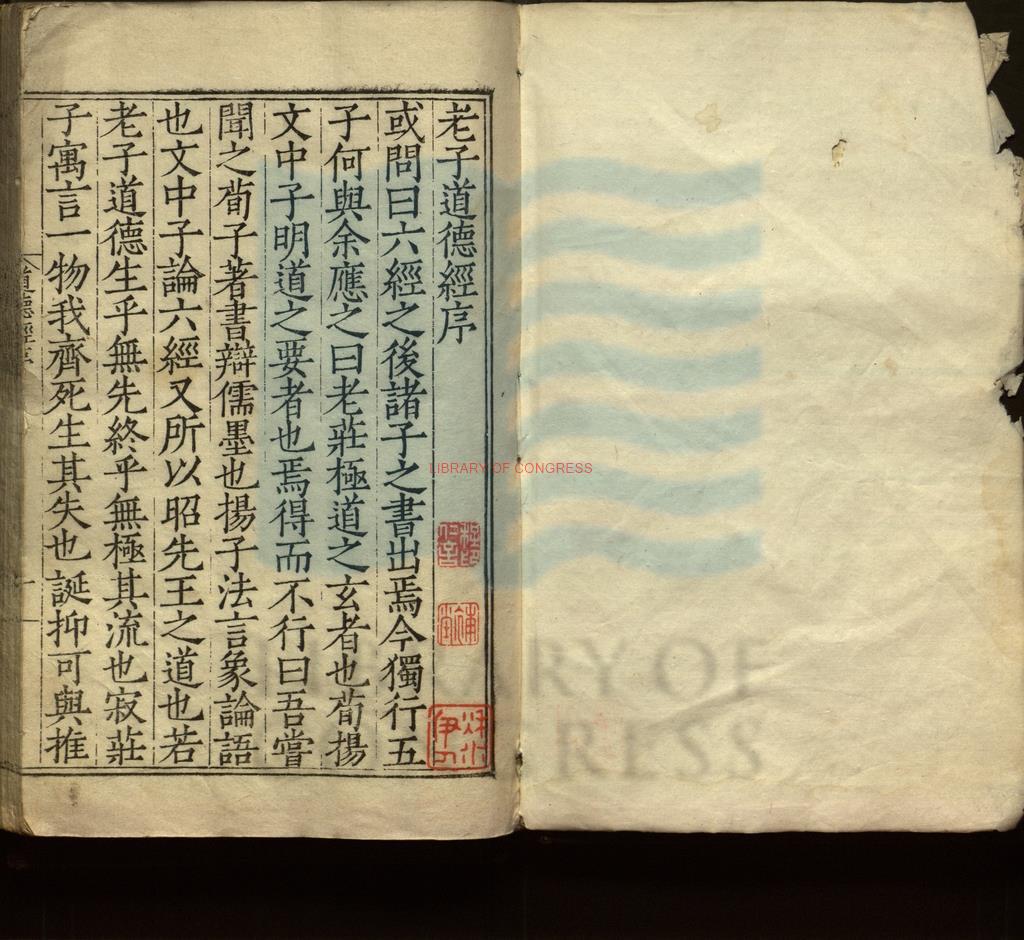 老子道德經序
或問曰六經之後諸子之書出焉今獨行五
子何與余應之曰老莊極道之玄者也荀揚
文中子明道之要者也焉得而不行曰吾嘗
聞之荀子著書辯儒墨也揚子法言象論語
也文中子論六經又所以昭先王之道也若
老子道德生乎無先終乎無極其流也寂莊
子寓言一物我齊死生其失也誕抑可與推
道德經序
一
LIBRARY OF CONGRESS
LIBRARY OF
CONGRESS